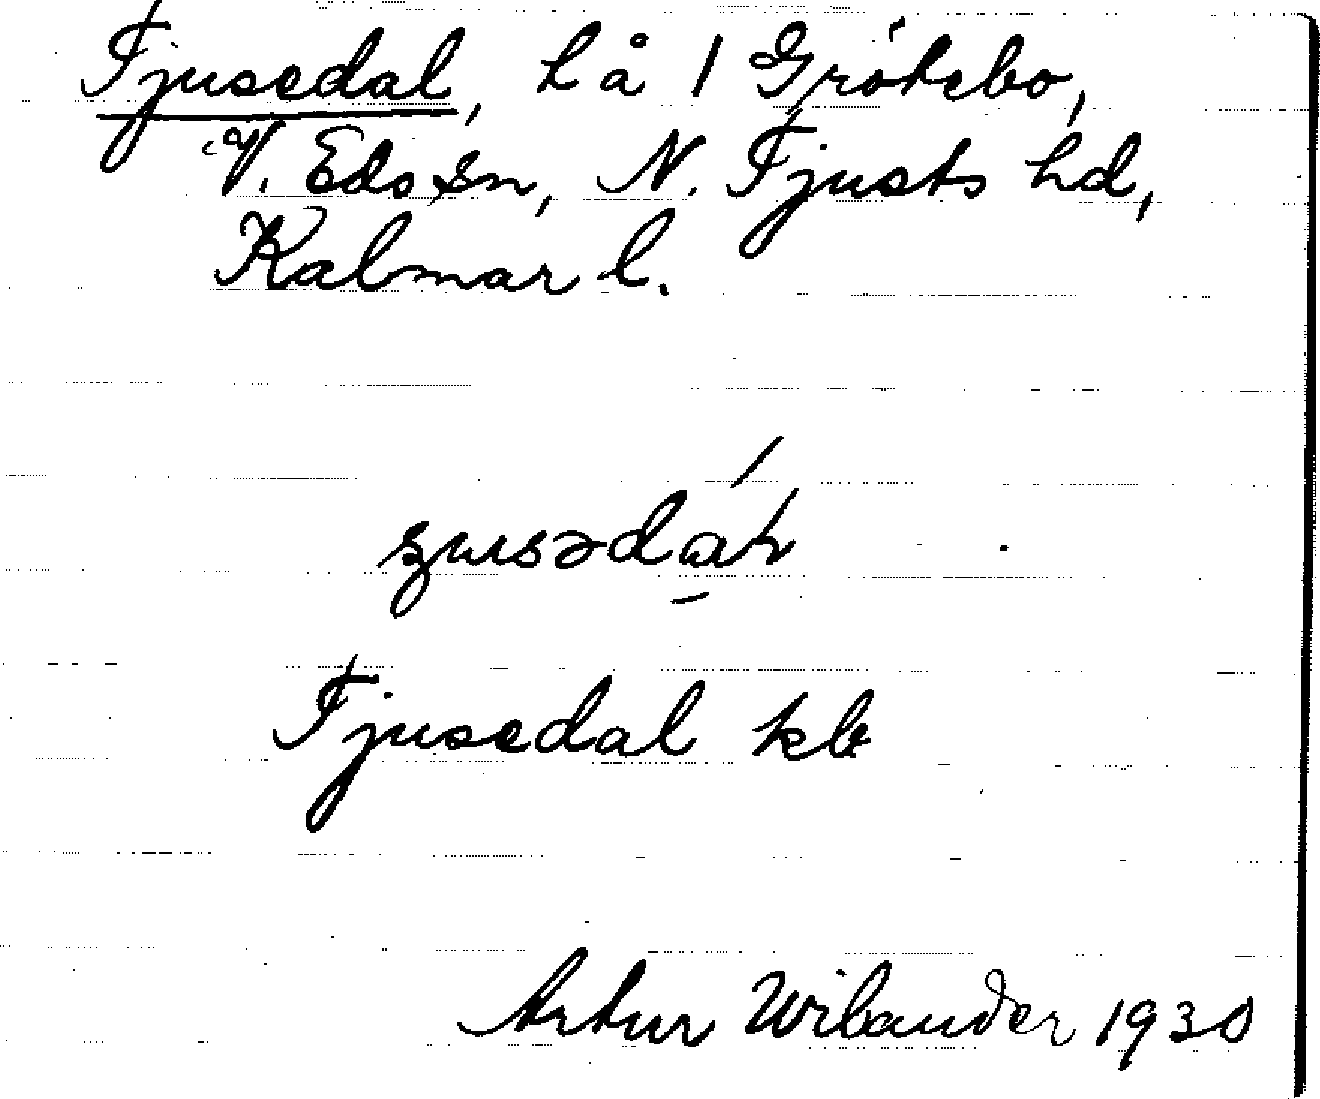 Tjusedal, L å 1 Grötebo,
V. Eds sn, N. Tjusts hd,
Kalmar l.
Tjusedal kb
Artur Wilander 1930